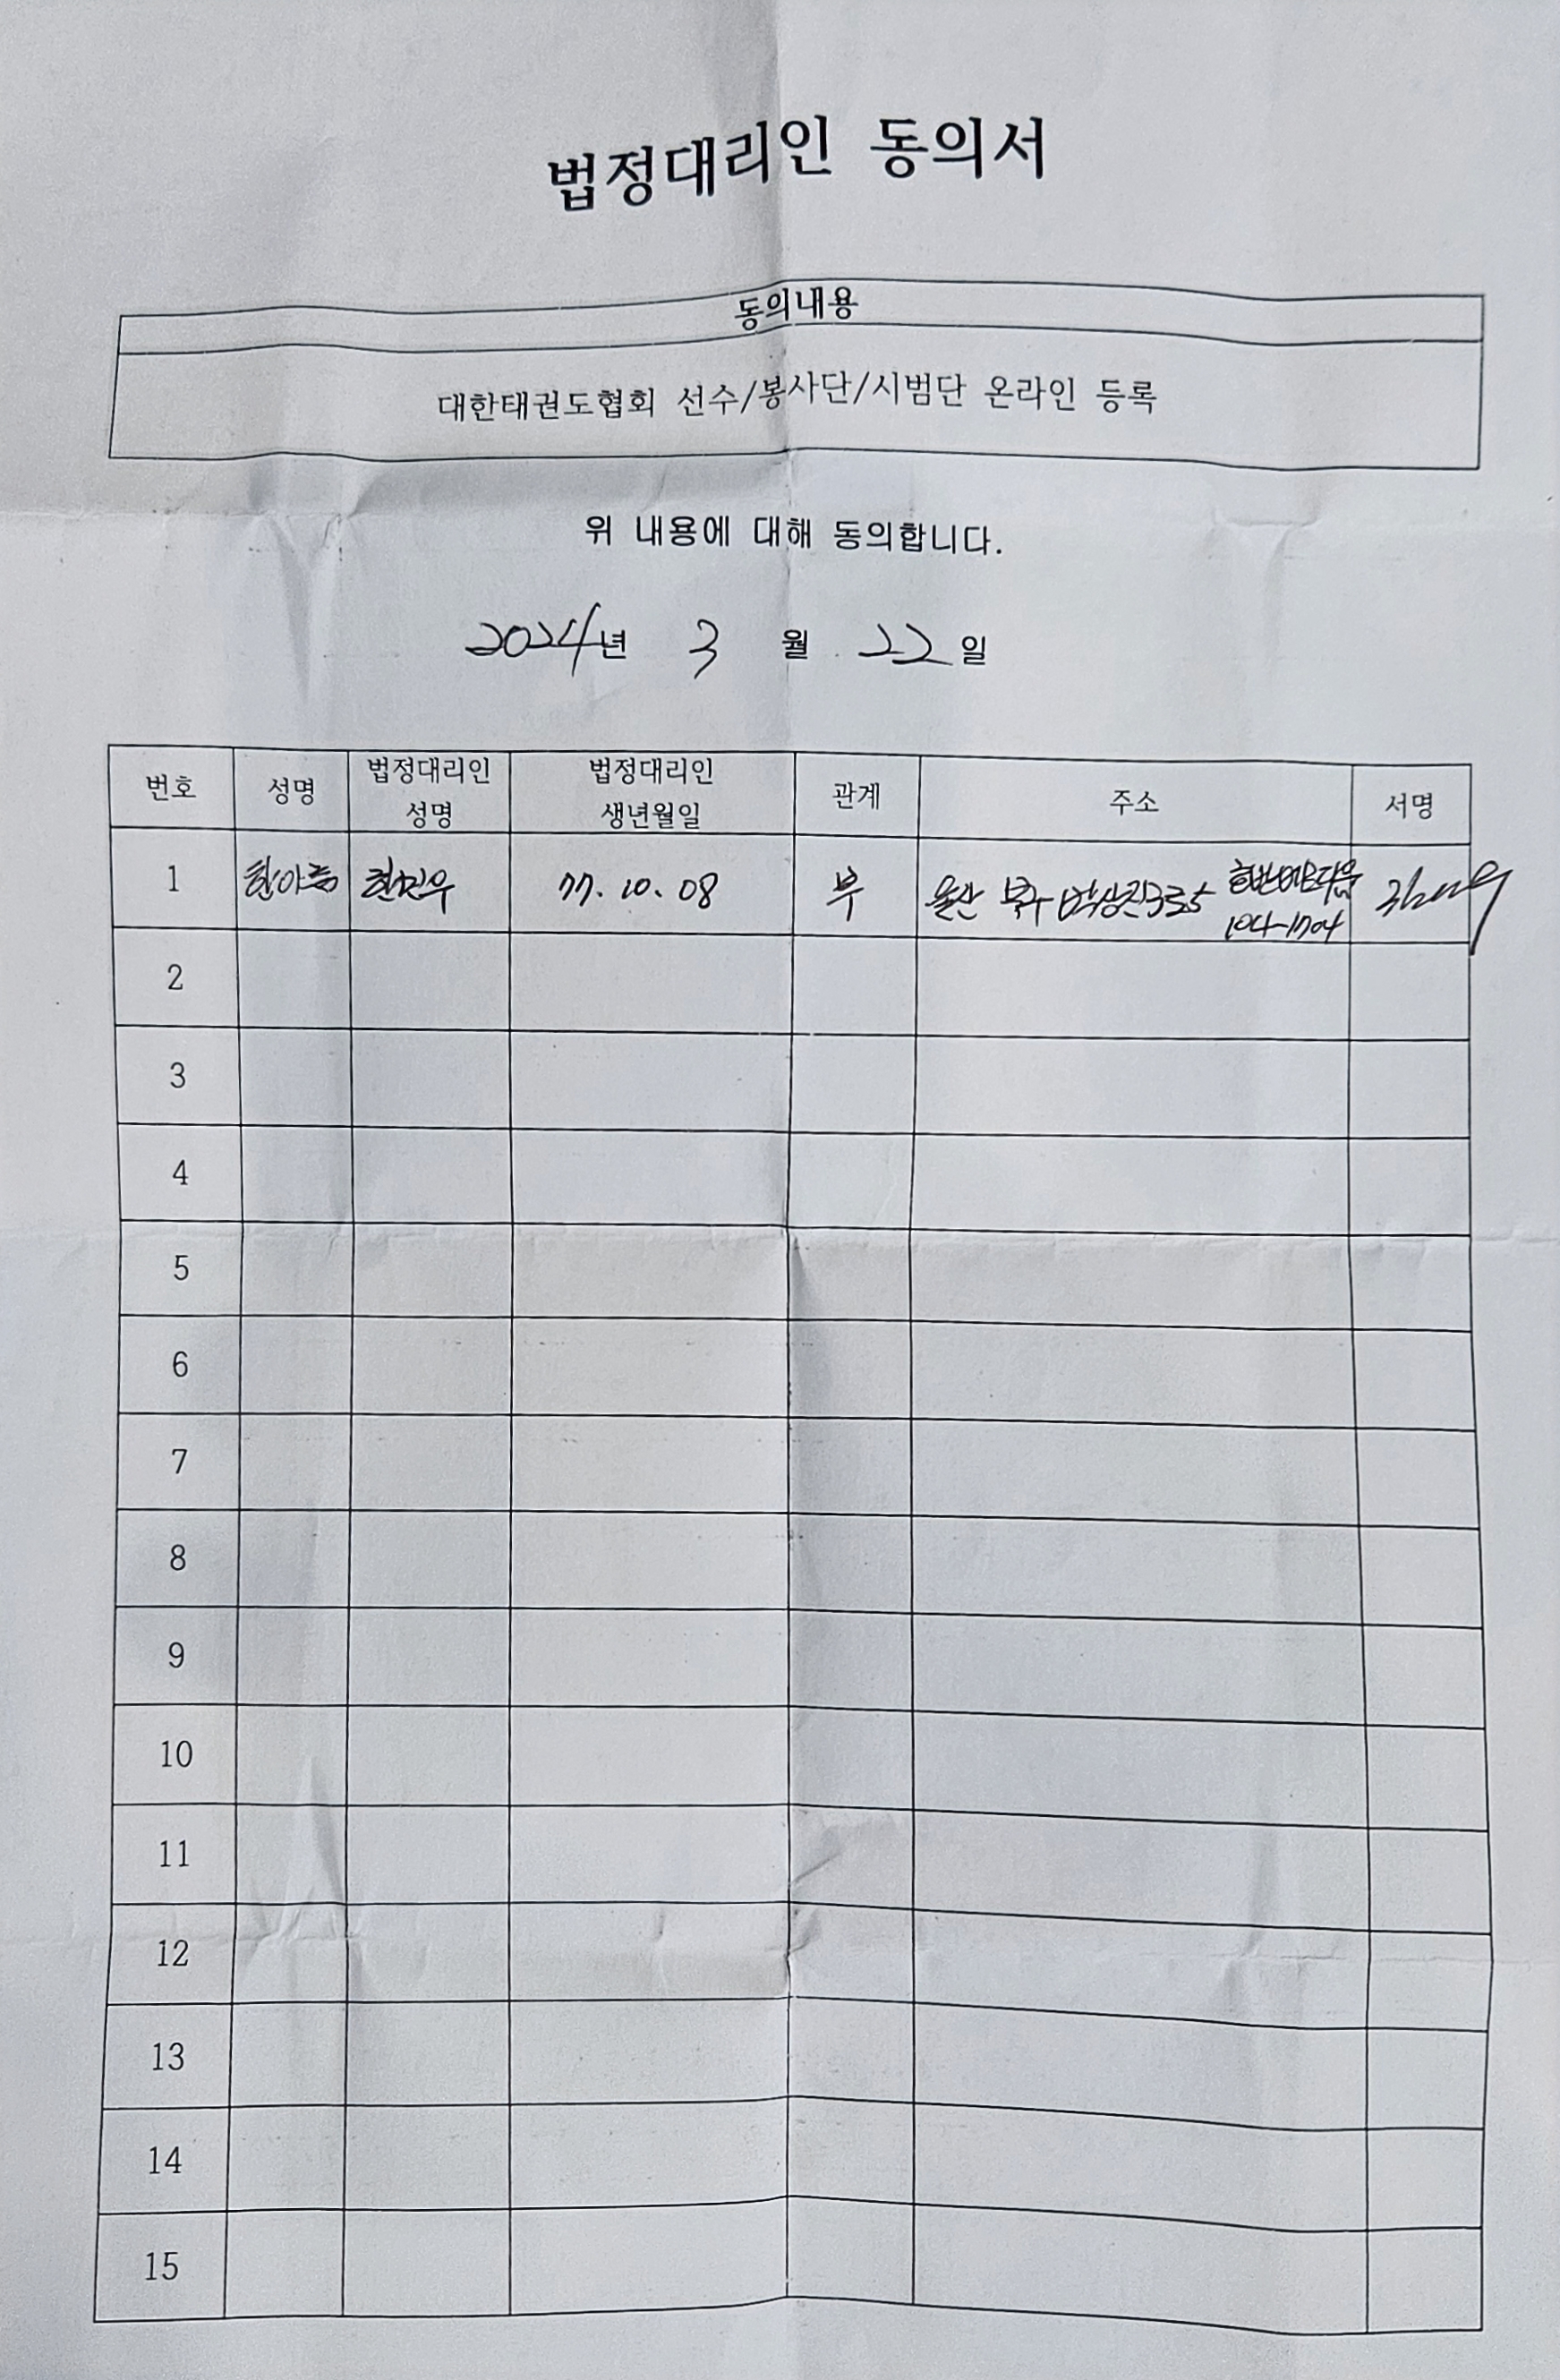 법정대리인 동의서
동의내용
대한태권도협회 선수/봉사단/시범단 온라인 등록
위 내용에 대해 동의합니다.
2024년 3 월 22 일
번호 성명 법정대리인 성명 법정대리인 생년월일 관계 주소 서명
1 77. 10. 08 부 울산 북구 박상진3로5
104-1704
2
3
4
5
6
7
8
9
10
11
12
13
14
15